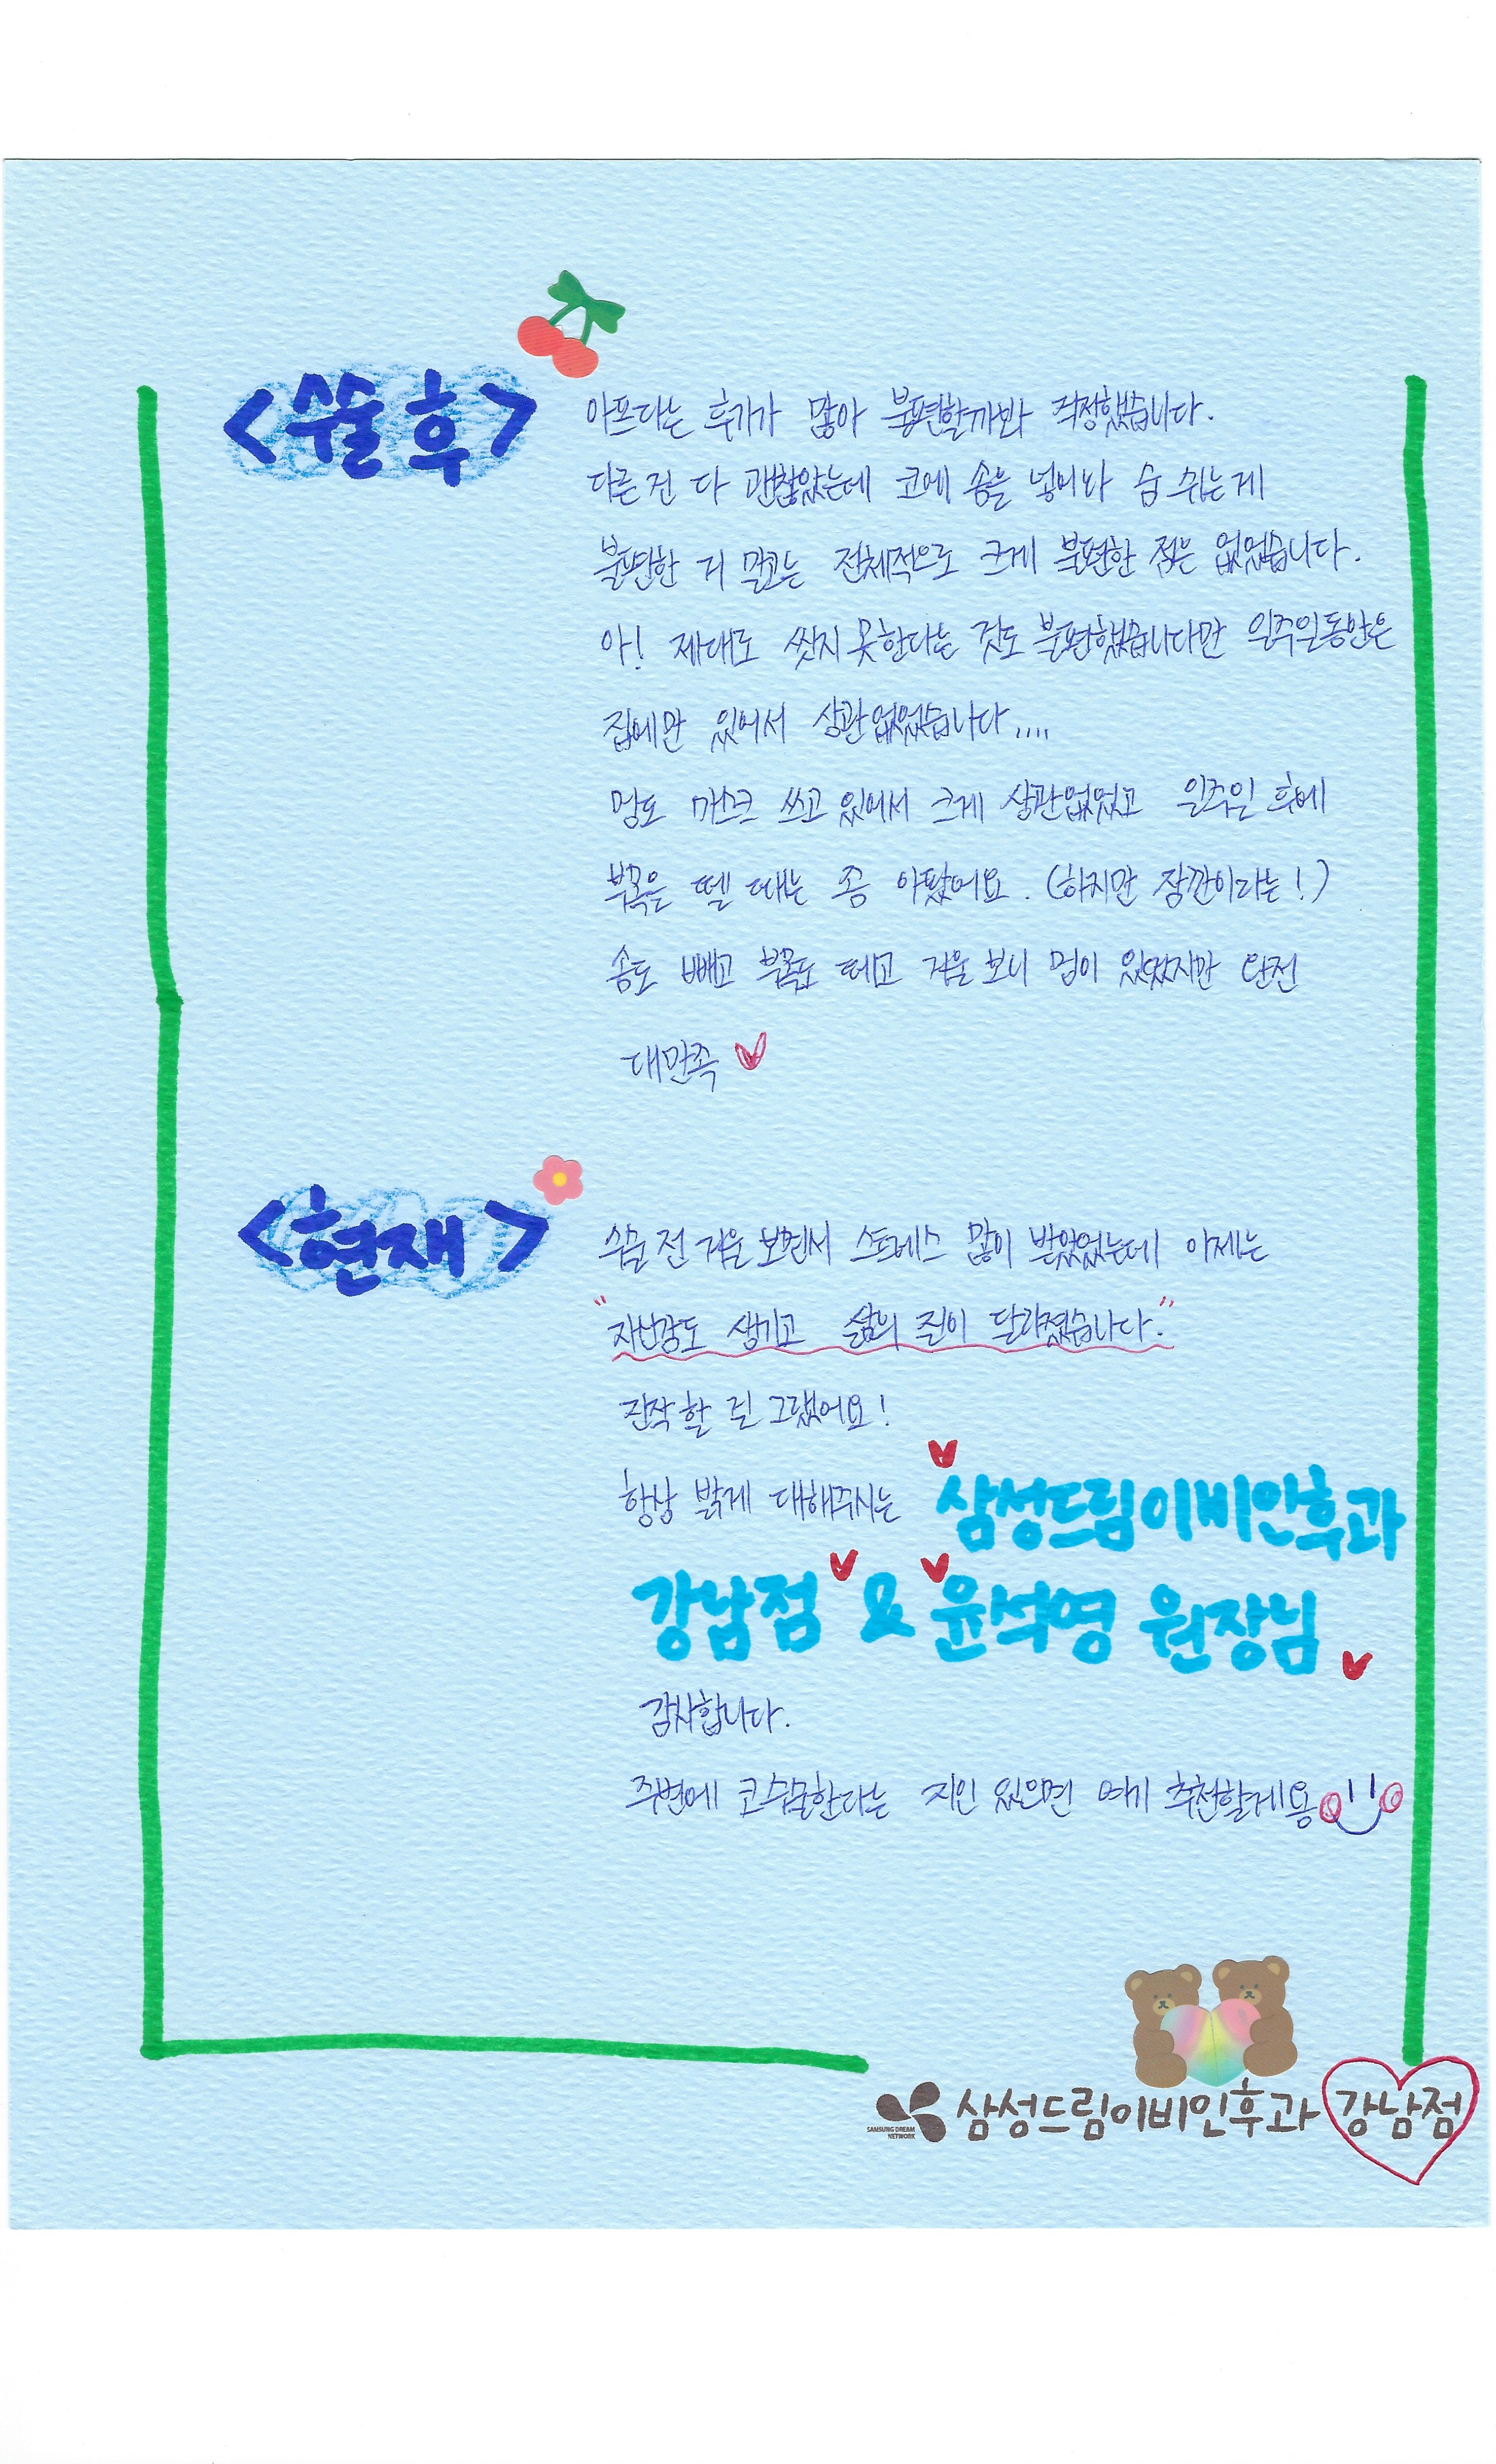 <수술 후>
아프다는 후기가 많아 불편할까봐 걱정했습니다.
다른 건 다 괜찮았는데 코에 솜을 넣어놔 숨 쉬는게
불편한 거 말고는 전체적으로 크게 불편한 점은 없었습니다.
아! 제대로 씻지 못한다는 것도 불편했습니다만 일주일동안은
집에만 있어서 상관없었습니다....
멍도 마스크 쓰고 있어서 크게 상관없었고 일주일 후에
부목을 뗄 때는 좀 아팠어요. (하지만 잠깐이라는!)
솜도 빼고 부목도 떼고 거울 보니 멍이 있었지만 완전
대만족
<현재>
수술 전 거울 보면서 스트레스 많이 받았었는데 이제는
"자신감도 생기고 삶의 질이 달라졌습니다."
진작 할 걸 그랬어요!
항상 밝게 대해주시는 삼성드림이비인후과
강남점 & 윤석영 원장님
감사합니다.
주변에 코수술한다는 지인 있으면 여기 추천할게용
SAMSUNG DREAM
NETWORK
삼성드림이비인후과 강남점